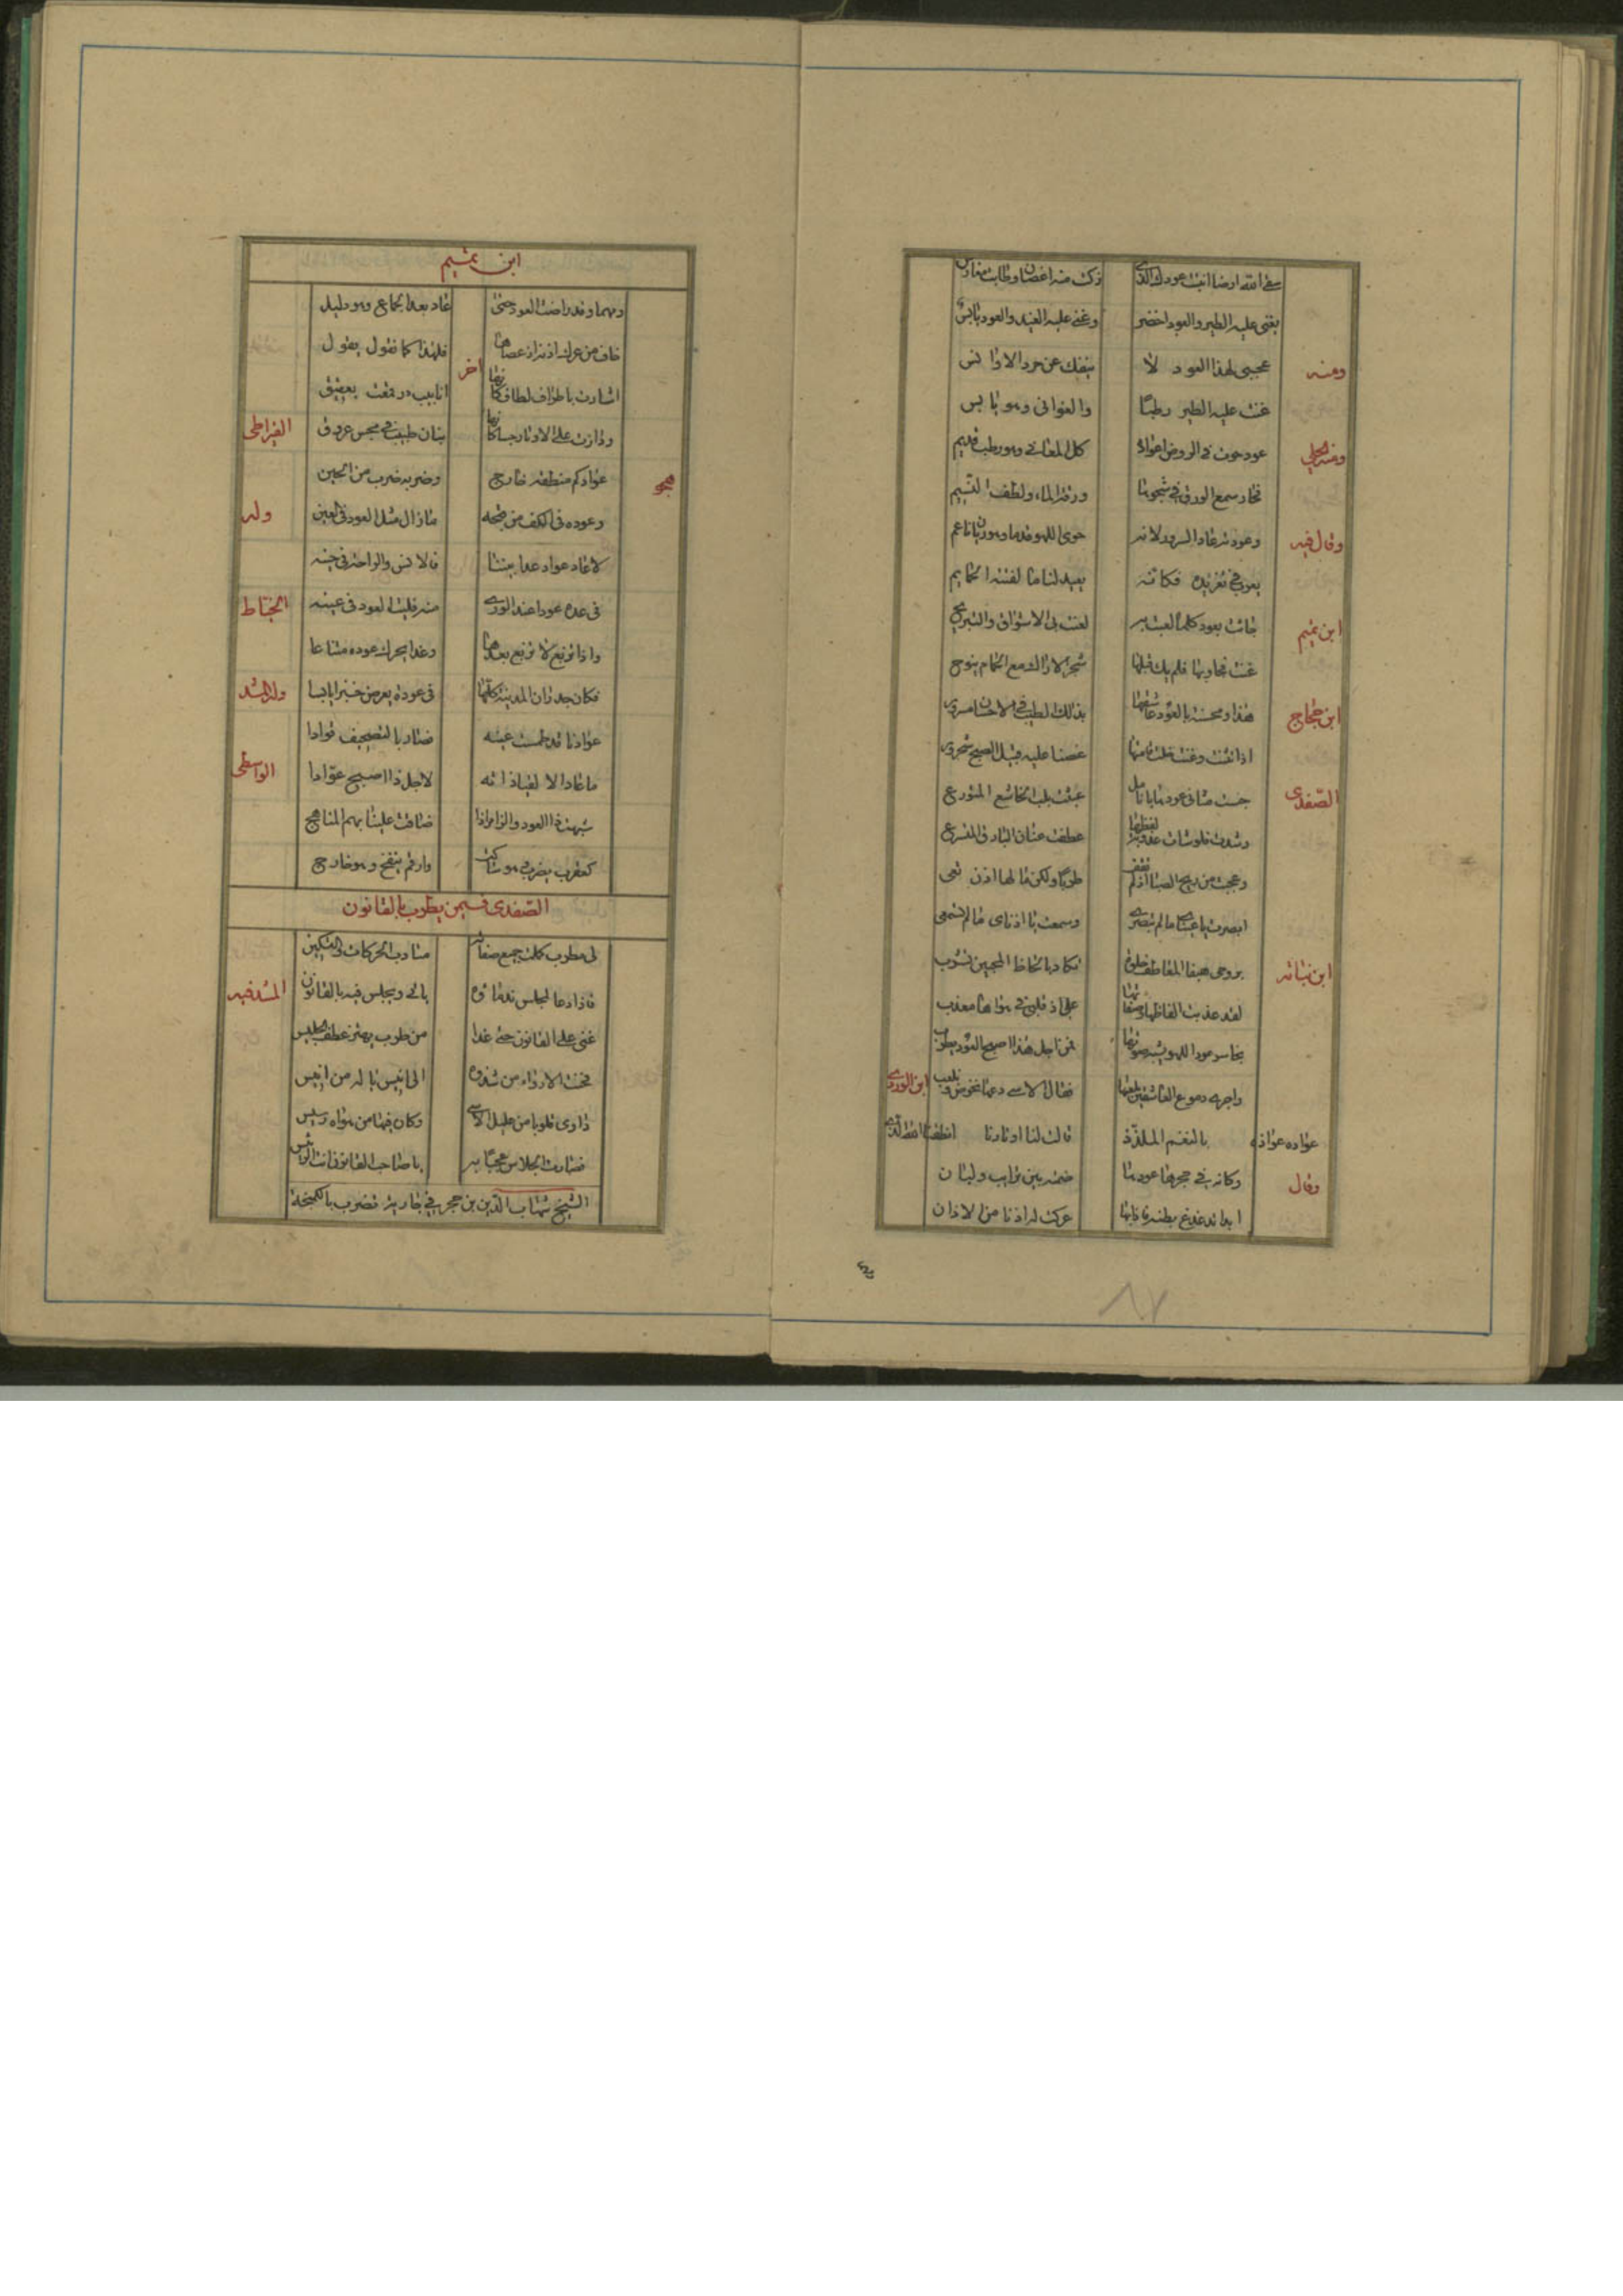 سقى الله ارضا انبتت عودك الذى زكت منه اغصان وطابت مغارس
يغنى عليه الطير والعود اخضر وغنى عليه الغيد والعود يابس
ومنه عجبى لهذا العود لا ينفك عن الاوانس
غنت عليه الطير رطبا والغوانى وهو يابس
عود حوت فى الروض اعواده كل المعانى وهو رطب قديم
فحاز سمع الورق فى شجوها ورقة الماء ولطف النسيم
وقال فيه وعود به عاد السرور لانه حوى اللهو قدما وهو ريان ناعم
يغرب فى تغريده فكانه يعيد لنا ما لقنته الحمايم
ابن تميم جائت بعود كلما لعبت به لعبت بى الاشواق والتبريح
غنت فجاوبها فلم يك قبلها شجر الاراك مع الحمام ينوح
ابن حجاج هذا ومحسنة بالعود عاشقها بذلك الطيب فى الاحسان مسرور
اذا تثنت وغنت خلت قامتها غصنا عليه قبيل الصبح شحرور
الصفدى جست مثانى عودها بانامل عبثت بلب الخاشع المتورع
وشدت فلو شائت عذوبة لفظها عطفت عنان البارق المتسرع
وعجبت من ريح الصبا اذ لم تقف طربا ولكن ما لها اذن تعى
ابصرت يا عينى ما لم تبصرى وسمعت يا اذناى ما لم تسمعى
ابن نباته بروحى هيفا المعاطف حلوة تكاد بالحاظ المحبين تشرب
لقد عذبت الفاظها وصفاتها على ان قلبى فى هواها معذب
واجرت دموع العاشقين بلعبها فقال الاسى دعها تخوض وتلعب
ابن الوردى
عواده عواذه بالنغم الملذذ قالت لنا اوتارنا انطقنا الله الذى
وقال وكانه فى حجرها عود لها ضمته بين ترايب ولبان
ابدا تدغدغ بطنه فاذا عركت له اذنا من الاذان
ابن تميم
ومهما وقد راضت العود حتى عاد بعد الجماح وهو ذليل
خاف من عرك اذنه اذ عصاها فلهذا كما تقول يقول
اخر اشارت باطراف لطاف كانها انابيب در قمعت بعقيق
ودارت على الاوتار جسا كانها بنان طبيب فى مجس عروق
القيراطى
هجو عوادكم منطقه خارج وضربه ضرب من الحين
وعوده فى الكف من قبحه مازال مثل العود فى العين
وله
لا عاد عواد غدا بيننا فالانس والراحة فى
فى عوده عودا عند الورى منه قلبت العود فى عينه
الخياط
واذا تربع لا تربع بعدها وغدا يحرك عوده متناعسا
فكان جدران المدينة كلها فى عوده يعرض خبزا يابسا
ولد المشد
عوادنا قد طمست عينه فصار بالتصحيف قوادا
ما عاد الا لقياداته لاجل ذا اصبح عوادا
الواسطى
شبهت ذا العود والزامر اذا ضاقت علينا بهم المناهج
كعقرب يضرب وهو ساكت وارقم ينفخ وهو خارج
الصفدى فيمن يطرب بالقانون
لى مطرب كملت جميع صفاته متأدب الحركات والتسكين
فاذا دعا لمجلس ندماؤه يأتى ويجلس فيه بالقانون
المشد فيه
غنى على القانون حتى غدا من طرب يهتز عطف الجليس
فحنت الارواح من شدوه الى انيس يا له من انيس
داوى قلوبا من عليل الاسى وكان فيها من هواه رسيس
فصاحت الجلاس عجبا به يا صاحب القانون انت الرئيس
الشيخ شهاب الدين بن حجر فى جارية تضرب بالكمنجة